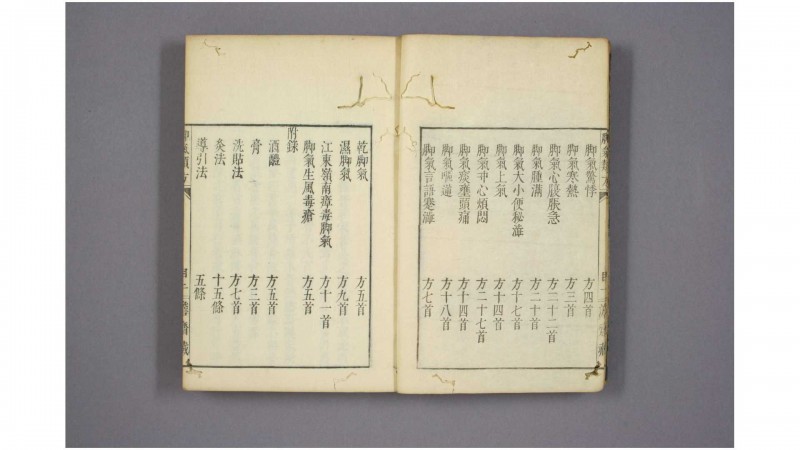 脚氣驚悸 方四首
脚氣寒熱 方三首
脚氣心腹脹急 方二十二首
脚氣腫滿 方二十首
脚氣大小便秘澁 方十七首
脚氣上氣 方十四首
脚氣冲心煩悶 方二十七首
脚氣痰壅頭痛 方十四首
脚氣嘔逆 方十八首
脚氣言語蹇澁 方七首
乾脚氣 方五首
濕脚氣 方九首
江東嶺南瘴毒脚氣 方十一首
脚氣生風毒瘡 方五首
附錄
酒醴 方五首
膏 方三首
洗貼法 方七首
灸法 十五條
導引法 五條